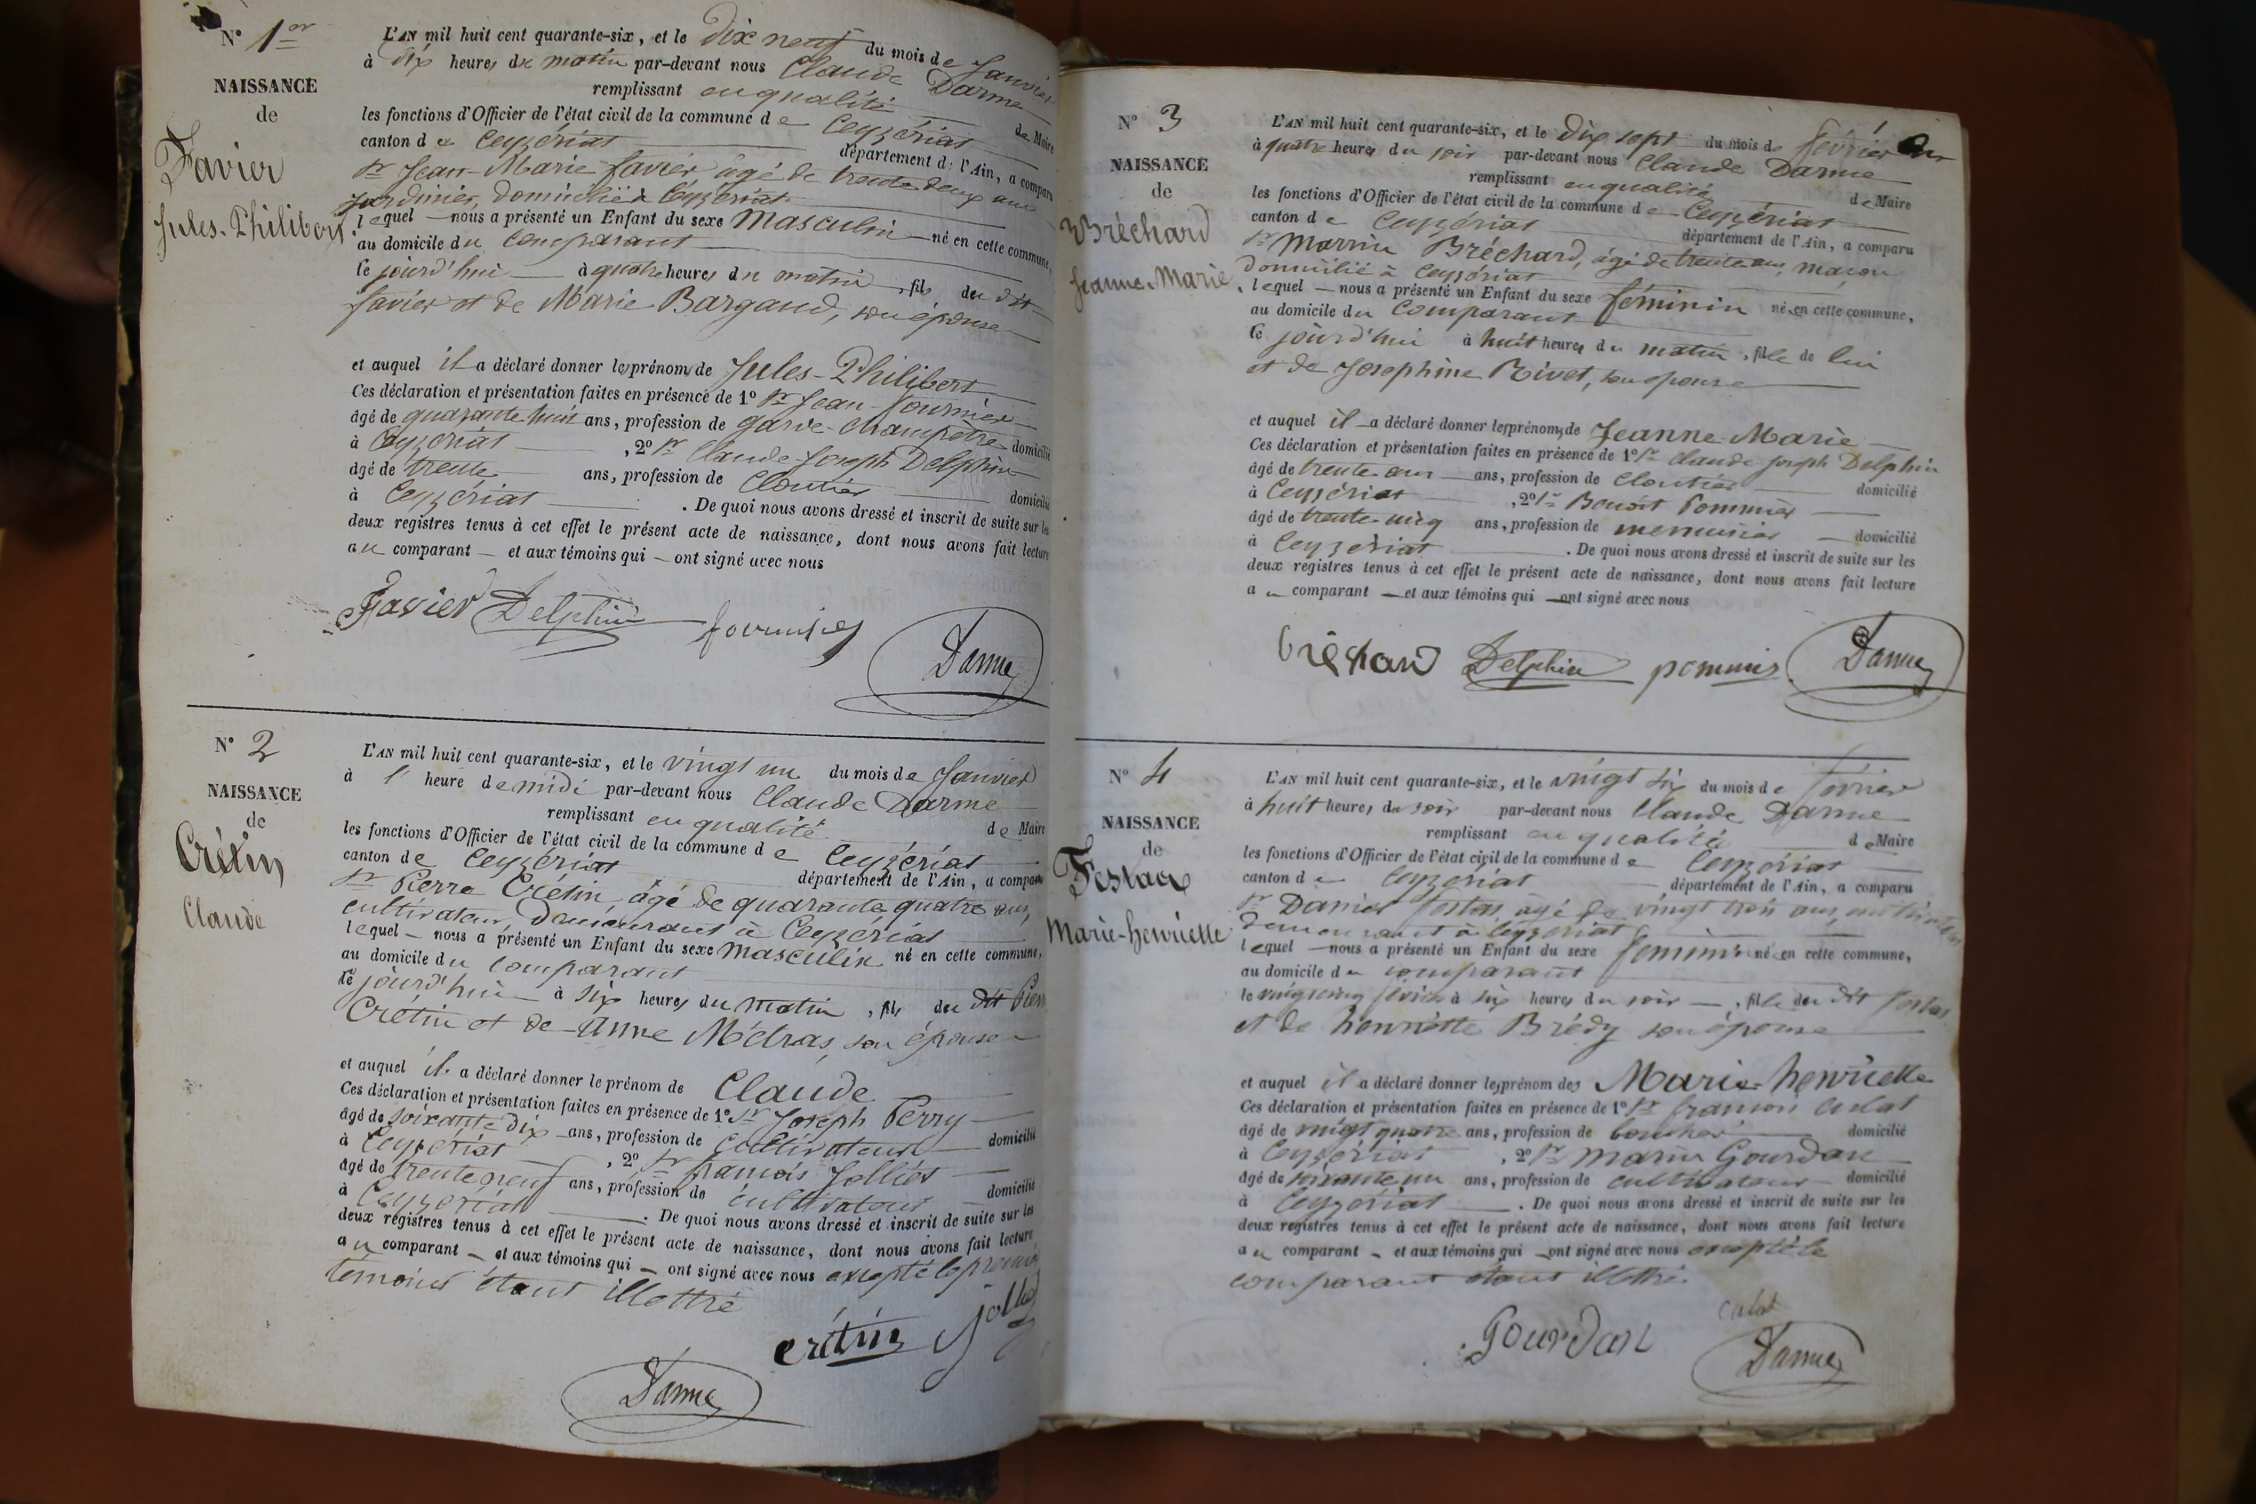 N° 1er
NAISSANCE
de
Favier
Jules-Philibert
L'AN mil huit cent quarante-six, et le dix neuf du mois de Janvier
à dix heures du matin par-devant nous Claude Darme
remplissant en qualité de Maire
les fonctions d'Officier de l'état civil de la commune de Ceyzériat
canton de Ceyzériat département de l'Ain, a comparu
Sr Jean-Marie Favier âgé de trente deux ans
Jardinier, domicilié à Ceyzériat
lequel nous a présenté un Enfant du sexe Masculin né en cette commune,
au domicile du comparant
le jourd'hui à quatre heures du matin, fils du dit
Favier et de Marie Bargaud, son épouse
et auquel il a déclaré donner les prénoms de Jules-Philibert
Ces déclaration et présentation faites en présence de 1° Sr Jean Fournier
âgé de quarante huit ans, profession de garde-champêtre domicilié
à Ceyzériat, 2° Sr Claude Joseph Delphin
âgé de trente ans, profession de Cloutier domicilié
à Ceyzériat. De quoi nous avons dressé et inscrit de suite sur les
deux registres tenus à cet effet le présent acte de naissance, dont nous avons fait lecture
au comparant et aux témoins qui ont signé avec nous
Favier Delphin fournier
Darme
N° 2
NAISSANCE
de
Crétin
Claude
L'AN mil huit cent quarante-six, et le vingt un du mois de Janvier
à l' heure de midi par-devant nous Claude Darme
remplissant en qualité de Maire
les fonctions d'Officier de l'état civil de la commune de Ceyzériat
canton de Ceyzériat département de l'Ain, a comparu
Sr Pierre Crétin, âgé de quarante quatre ans,
cultivateur, demeurant à Ceyzériat
lequel nous a présenté un Enfant du sexe Masculin né en cette commune,
au domicile du comparant
le jourd'hui à six heures du matin, fils du dit Pierre
Crétin et de Anne Mélras, son épouse
et auquel il a déclaré donner le prénom de Claude
Ces déclaration et présentation faites en présence de 1° Sr Joseph Perry
âgé de soixante dix ans, profession de Cultivateur domicilié
à Ceyzériat, 2° Sr françois Jolliet
âgé de trente neuf ans, profession de cultivateur domicilié
à Ceyzériat. De quoi nous avons dressé et inscrit de suite sur les
deux registres tenus à cet effet le présent acte de naissance, dont nous avons fait lecture
au comparant et aux témoins qui ont signé avec nous excepté le premier
témoins étant illettré
crétin
Darme
N° 3
NAISSANCE
de
Bréchard
Jeanne-Marie
L'AN mil huit cent quarante-six, et le dix sept du mois de février
à quatre heures du soir par-devant nous Claude Darme
remplissant en qualité de Maire
les fonctions d'Officier de l'état civil de la commune de Ceyzériat
canton de Ceyzériat département de l'Ain, a comparu
Sr Marrin Bréchard, âgé de trente ans, maçon
domicilié à Ceyzériat
lequel nous a présenté un Enfant du sexe féminin née en cette commune,
au domicile du comparant
le jourd'hui à huit heures du matin, fille de lui
et de Josephine Rivet, son épouse
et auquel il a déclaré donner les prénoms de Jeanne-Marie
Ces déclaration et présentation faites en présence de 1° Sr Claude Joseph Delphin
âgé de trente ans ans, profession de Cloutier domicilié
à Ceyzériat, 2° Sr Benoit Pommier
âgé de trente cinq ans, profession de menuisier domicilié
à Ceyzériat. De quoi nous avons dressé et inscrit de suite sur les
deux registres tenus à cet effet le présent acte de naissance, dont nous avons fait lecture
au comparant et aux témoins qui ont signé avec nous
Delphin Darme
N° 4
NAISSANCE
de
Festaz
Marie-henriette
L'AN mil huit cent quarante-six, et le vingt six du mois de février
à huit heures du soir par-devant nous Claude Darme
remplissant en qualité de Maire
les fonctions d'Officier de l'état civil de la commune de Ceyzériat
canton de Ceyzériat département de l'Ain, a comparu
Sr Daniel Festaz âgé de vingt trois ans, cultivateur
demeurant à Ceyzériat
lequel nous a présenté un Enfant du sexe féminin née en cette commune,
au domicile du comparant
le vingt cinq février à six heures du soir, fille du dit Festaz
et de henriette Brédy son épouse
et auquel il a déclaré donner les prénom des Marie-henriette
Ces déclaration et présentation faites en présence de 1° Sr françois Culat
âgé de vingt quatre ans, profession de boucher domicilié
à Ceyzériat, 2° Sr Marin Gourdan
âgé de soixante un ans, profession de cultivateur domicilié
à Ceyzériat. De quoi nous avons dressé et inscrit de suite sur les
deux registres tenus à cet effet le présent acte de naissance, dont nous avons fait lecture
au comparant et aux témoins qui ont signé avec nous excepté le
comparant étant illettré.
culat
Gourdan
Darme